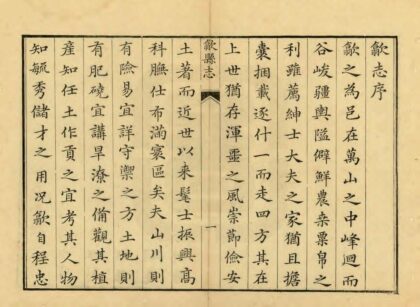 歙志序
歙之為邑在萬山之中峰迴而
谷峻疆輿隘僻鮮農桒粟帛之
利雖薦紳士大夫之家猶且擔
囊捆載逐什一而走四方其在
上世猶存渾噩之風崇節儉安
歙縣志
一
土著而近世以來髦士振興高
科膴仕布滿寰區矣夫山川則
有險易宜詳守禦之方土地則
有肥磽宜講旱潦之備觀其植
產知任土作貢之宜考其人物
知毓秀儲才之用況歙自程忠